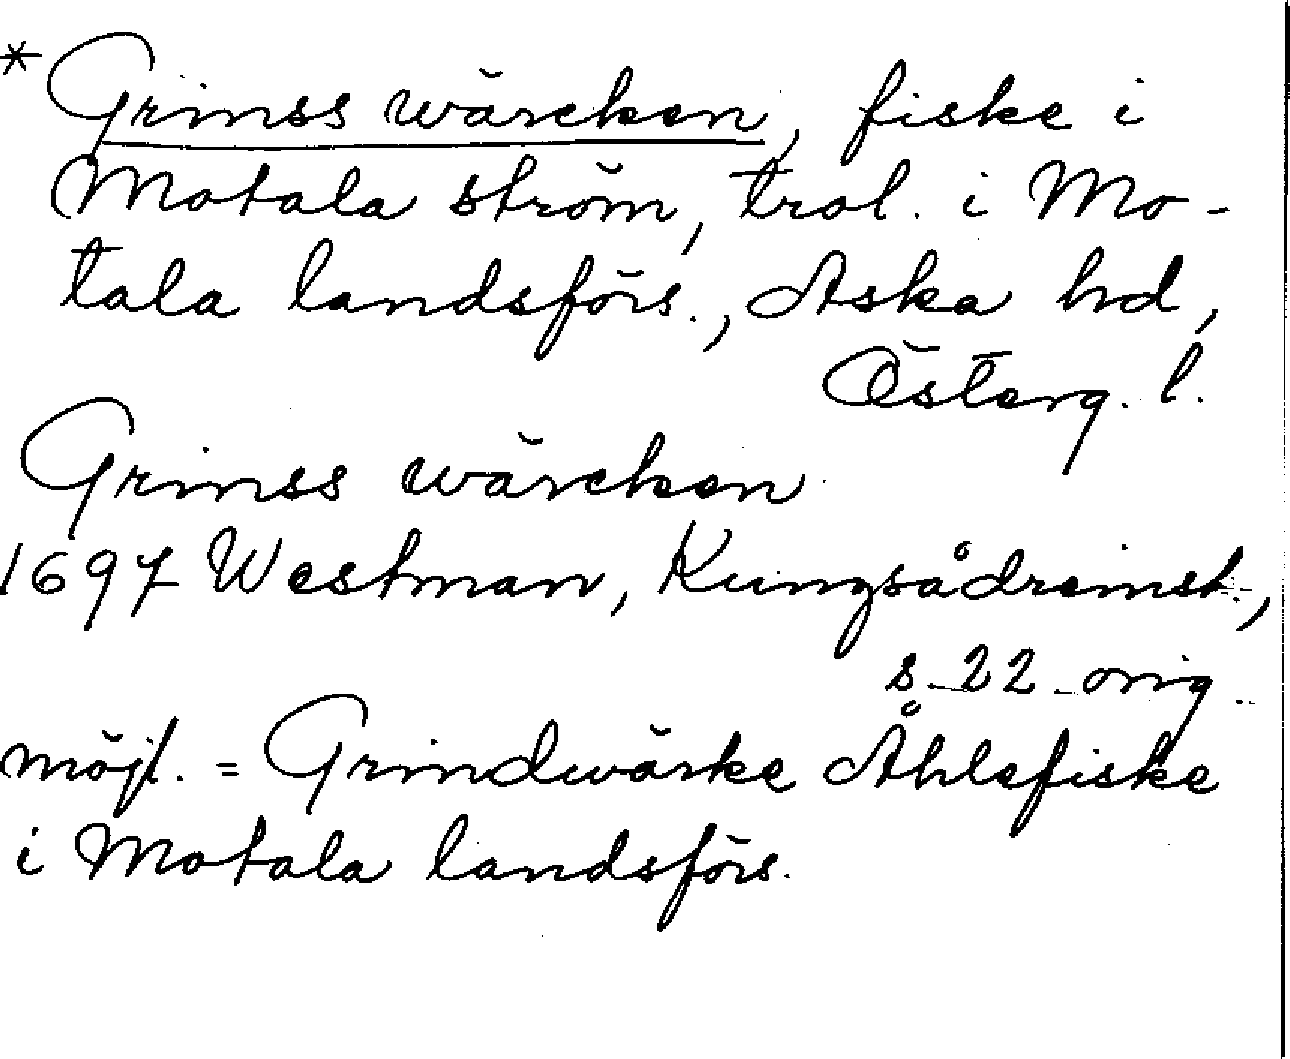 * Grimss wärcken, fiske i
Motala ström, trol. i Mo-
tala landsförs., Aska hd,
Österg. l.
Grimss wärcken
1697 Westman, Kungsådreinst.,
s. 22 orig.
möjl. = Grindwärke Åhlefiske
i Motala landsförs.